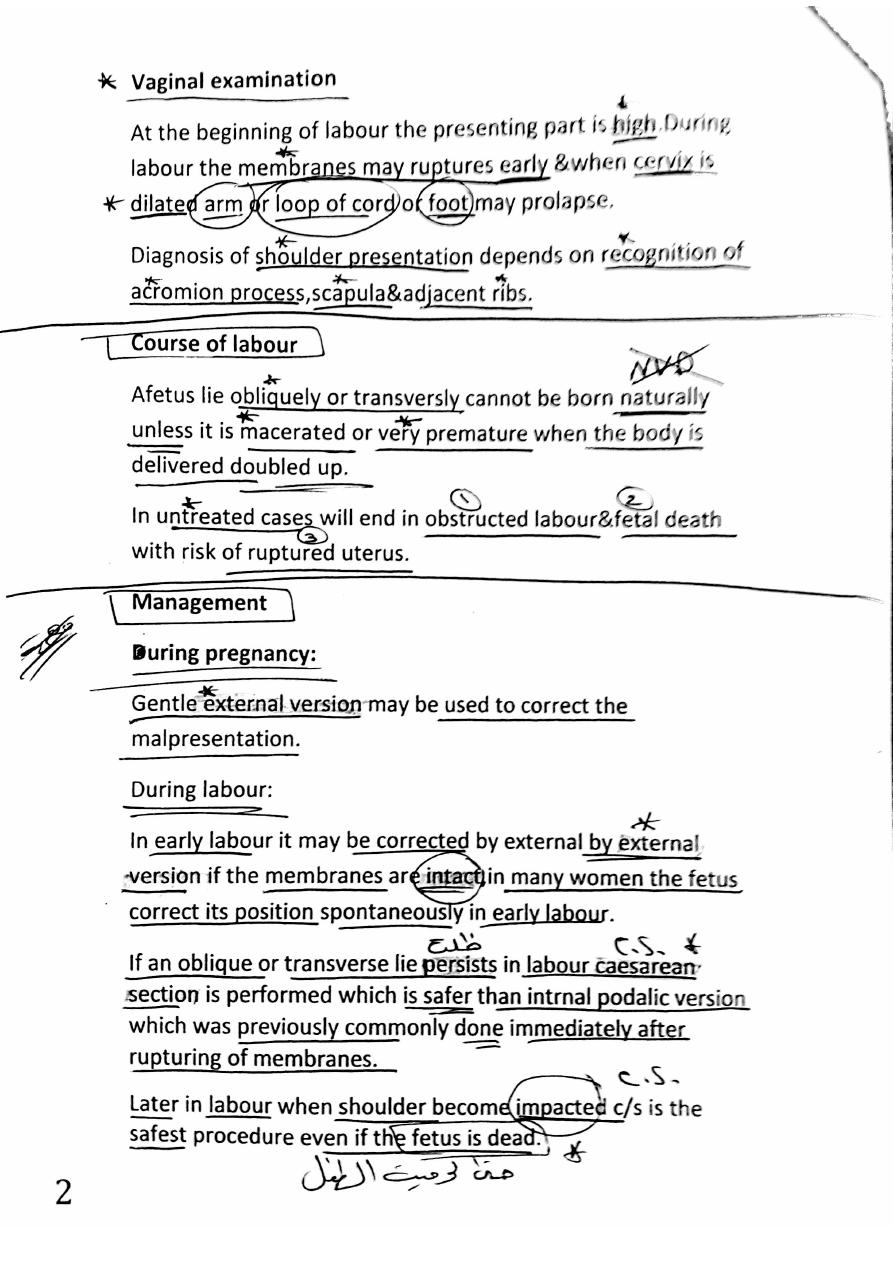 * Vaginal examination
At the beginning of labour the presenting part is high.During
labour the membranes may ruptures early &when cervix is
* dilated arm or loop of cord or foot may prolapse.
Diagnosis of shoulder presentation depends on recognition of
acromion process,scapula&adjacent ribs.
Course of labour
NVD
Afetus lie obliquely or transversly cannot be born naturally
unless it is macerated or very premature when the body is
delivered doubled up.
1 2
In untreated cases will end in obstructed labour&fetal death
3
with risk of ruptured uterus.
Management
During pregnancy:
Gentle external version may be used to correct the
malpresentation.
During labour:
In early labour it may be corrected by external by external
version if the membranes are intact,in many women the fetus
correct its position spontaneously in early labour.
C.S. *
If an oblique or transverse lie persists in labour caesarean
section is performed which is safer than intrnal podalic version
which was previously commonly done immediately after
rupturing of membranes.
C.S.
Later in labour when shoulder become impacted c/s is the
safest procedure even if the fetus is dead.
*
الطفل
2